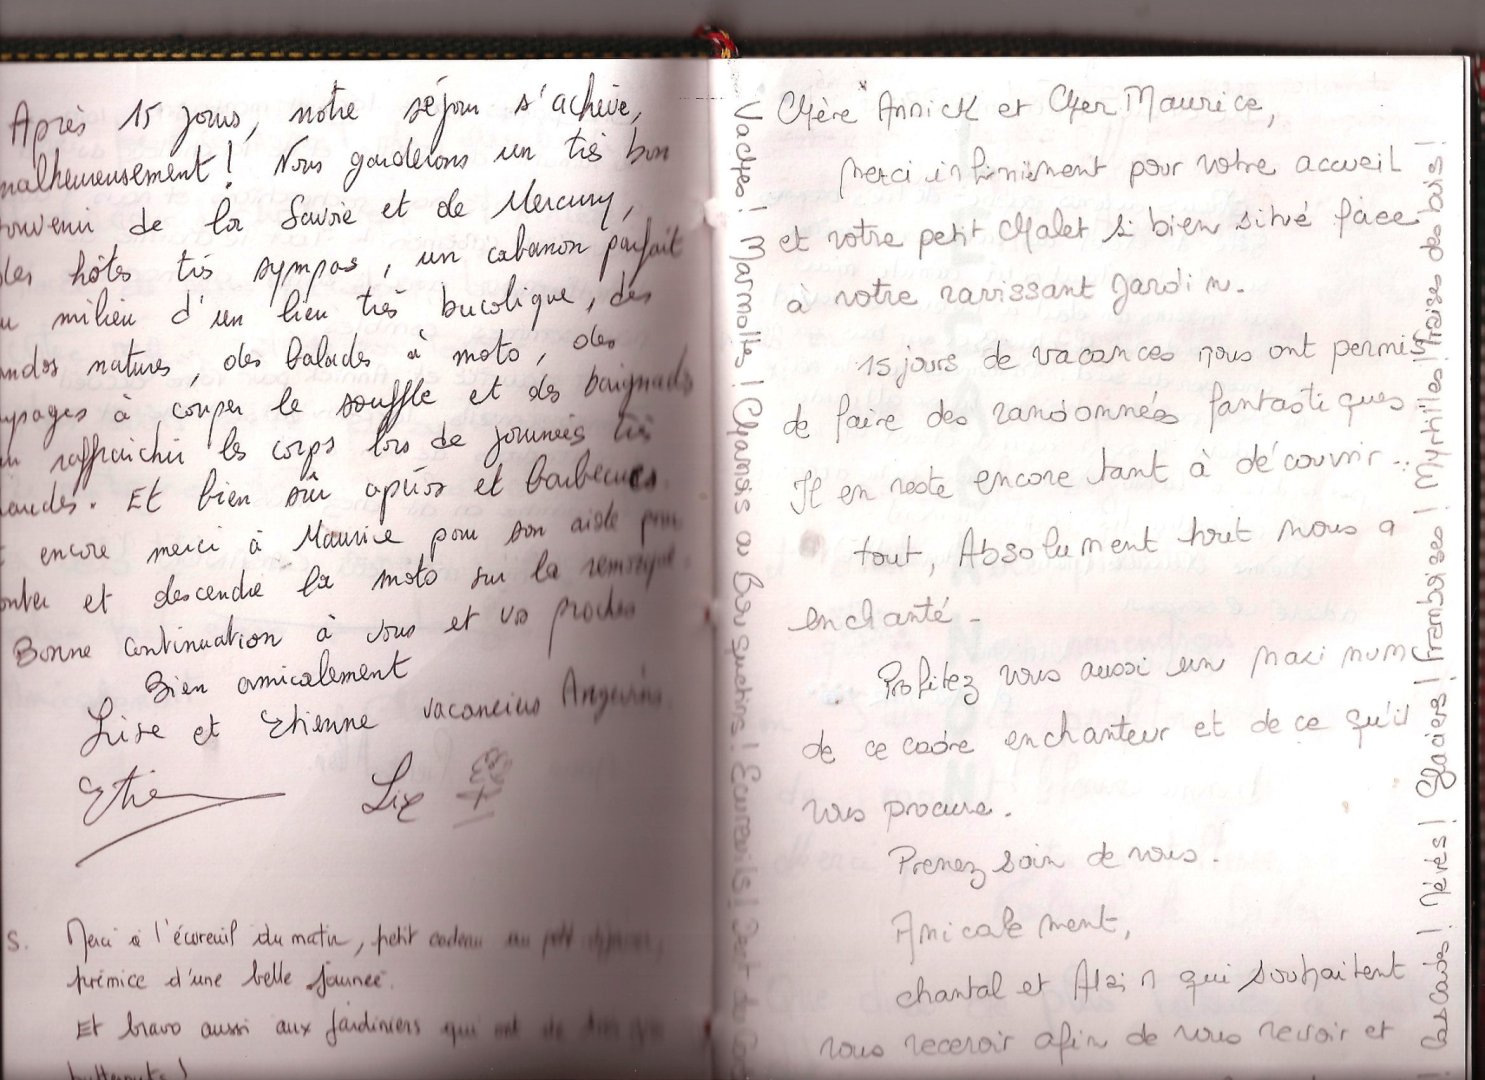 Après 15 jours, notre séjour s'achève,
malheureusement! Nous garderons un très bon
souvenir de la Savoie et de Mercury,
des hôtes très sympas, un cabanon parfait
au milieu d'un lieu très bucolique, des
randos natures, des balades à moto, des
paysages à couper le souffle et des baignades
raffraichir les corps lors de journées très
chaudes. Et bien sûr apéros et barbecues.
encore merci à Maurice pour son aide pour
monter et descendre la moto sur la remorque.
Bonne continuation à vous et vos proches
Bien amicalement
Lise et Etienne vacanciers Angevins.
Etie
Lise
S. Merci à l'écureuil du matin, petit cadeau au petit déjeuner,
prémice d'une belle journée.
Et bravo aussi aux jardiniers qui ont de
butternuts!
Vaches! Marmottes! Chamois ou Bouquetins! Ecureuils!
Chère Annick et Cher Maurice,
Merci infiniement pour votre accueil
et votre petit chalet si bien situé face
à votre ravissant jardin.
15 jours de vacances nous ont permis
de faire des randonnées fantastiques
Il en reste encore tant à découvrir...
tout, Absolument tout nous a
enchanté.
Profitez vous aussi un maximum
de ce cadre enchanteur et de ce qu'il
vous procure.
Prenez soin de vous.
Amicalement,
chantal et Alain qui souhaitent
vous recevoir afin de vous revoir et
Cascades! Névés! Glaciers! Framboises! Myrtilles! Fraises des bois!